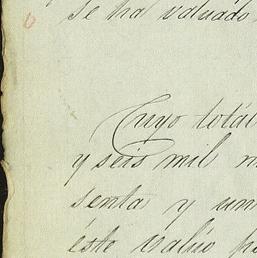 se ha valuado
Cuyo totál
y seis mil
senta y un
éste valúo